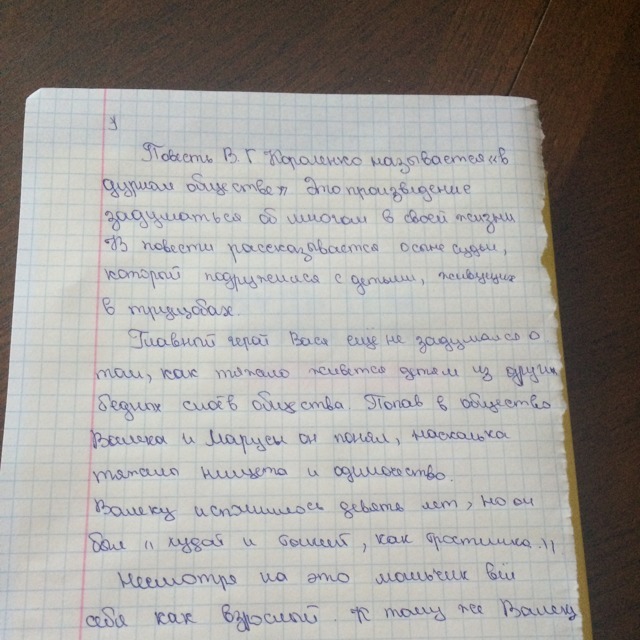 Повесть В. Г Короленко называется «в
дурном обществе» Это произведение
задуматься об многом в своей жизни
В повести рассказывается о сыне судьи,
который подружился с детьми, живущих
в трущобах.
Главной герой Вася ещё не задумался о
том, как тяжело живётся детям из других
бедных слоёв общества. Попав в общество
Валека и Маруси он понял, насколька
тяжело нищета и одиночество.
Валеку исполнилось девять лет, но он
был "худой и тонкий, как тростинка."
Несмотря на это мальчик вёл
себя как взрослой. К тому же Валеку